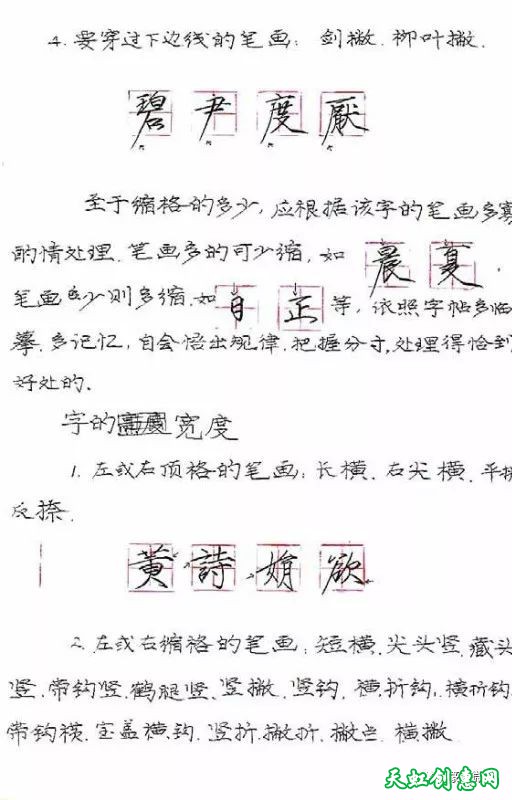 4. 要穿过下边线的笔画: 剑撇. 柳叶撇.
碧 尹 度 厭
至于缩格的多少, 应根据该字的笔画多寡
酌情处理. 笔画多的可少缩, 如 晨 夏.
笔画少则多缩. 如 日 正 等, 依照字帖多临
摹. 多记忆, 自会悟出规律. 把握分寸, 处理得恰到
好处的、
字的宽度
1. 左或右顶格的笔画: 长横. 右尖横. 平捺
反捺.
黄 詩 娟 欲
2. 左或右缩格的笔画: 短横. 尖头竖. 藏头
竖. 带钩竖. 鹤腿竖. 竖撇. 竖钩. 横折钩. 横折钩
带钩横. 宝盖横钩. 竖折. 撇折. 撇点. 横撇
天虹创意网